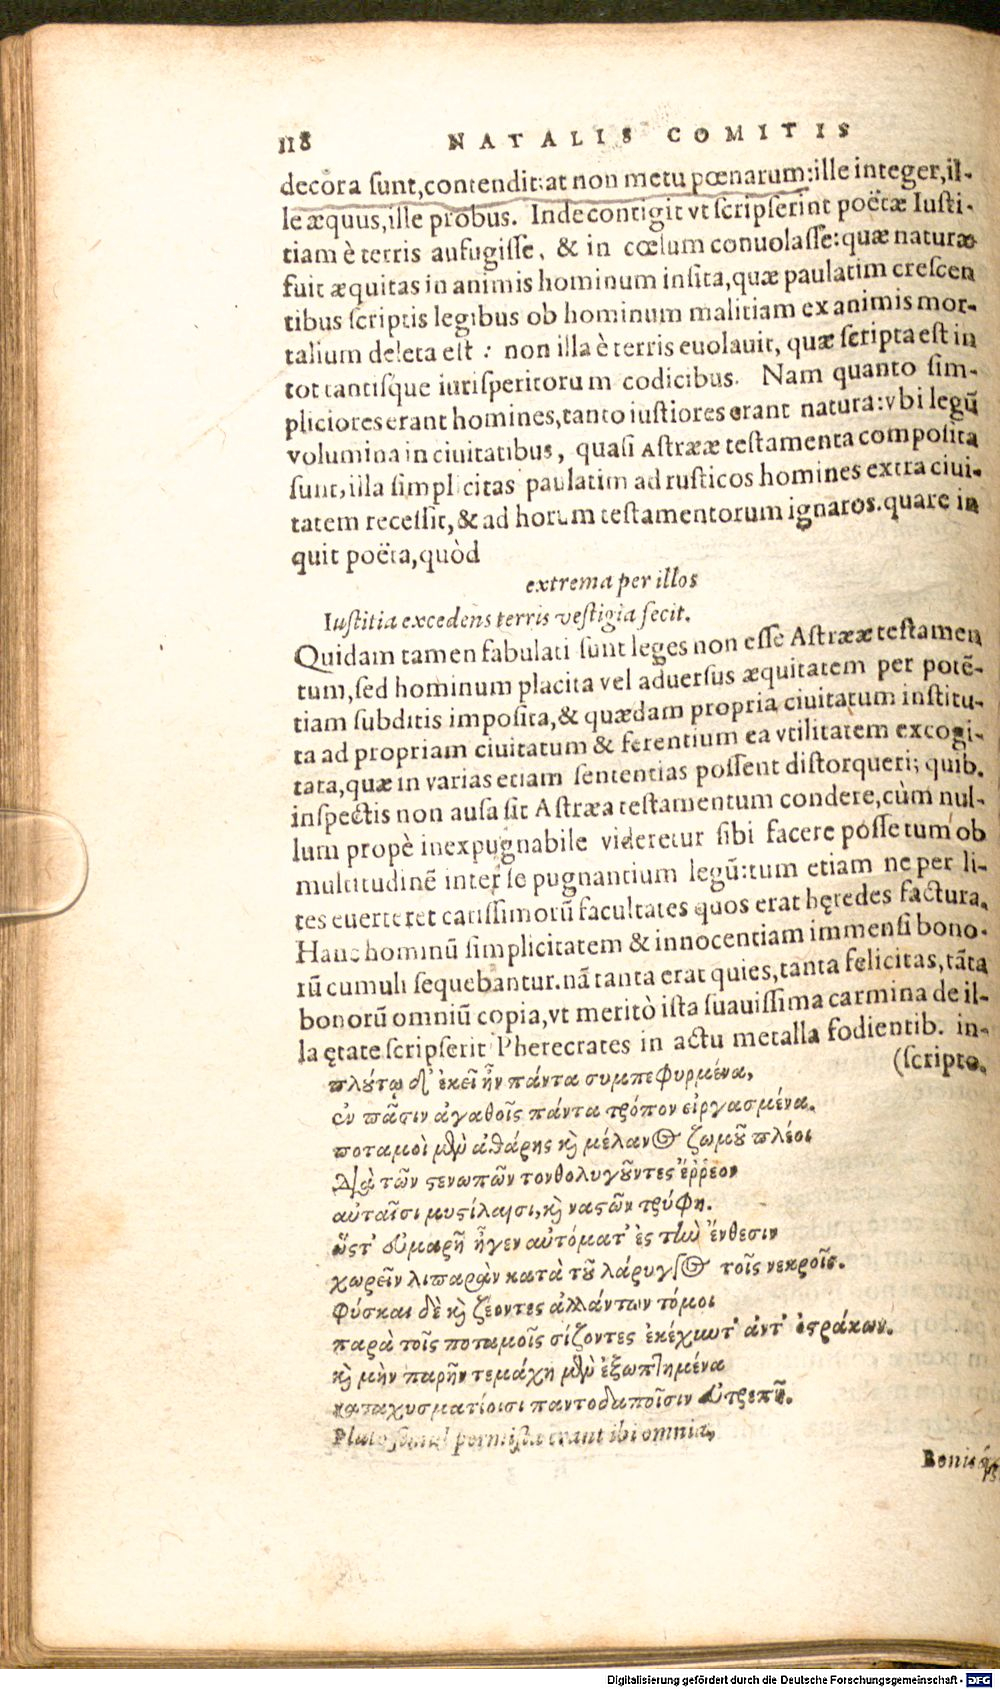 118 NATALIS COMITIS
decora sunt,contendit:at non metu pœnarum:ille integer,il-
le æquus,ille probus. Inde contigit vt scripserint poëtæ Iusti-
tiam è terris aufugisse, & in cœlum conuolasse:quæ naturæ
fuit æquitas in animis hominum insita,quæ paulatim crescen
tibus scriptis legibus ob hominum malitiam ex animis mor-
talium deleta est : non illa è terris euolauit, quæ scripta est in
tot tantisque iurisperitorum codicibus. Nam quanto sim-
pliciores erant homines,tanto iustiores erant natura:vbi legū
volumina in ciuitatibus, quasi Astrææ testamenta composita
sunt,illa simplicitas paulatim ad rusticos homines extra ciui-
tatem recessit,& ad horum testamentorum ignaros.quare in
quit poëta,quòd
extrema per illos
Iustitia excedens terris vestigia fecit.
Quidam tamen fabulati sunt leges non esse Astrææ testamen
tum,sed hominum placita vel aduersus æquitatem per potē-
tiam subditis imposita,& quædam propria ciuitatum institu-
ta ad propriam ciuitatum & ferentium ea vtilitatem excogi-
tata,quæ in varias etiam sententias possent distorqueri; quib.
inspectis non ausa sit Astræa testamentum condere,cùm nul-
lum propè inexpugnabile videretur sibi facere posse tum ob
multitudinē inter se pugnantium legū:tum etiam ne per li-
tes euerteret carissimorū facultates quos erat hęredes factura.
Hanc hominū simplicitatem & innocentiam immensi bono-
rū cumuli sequebantur.nā tanta erat quies,tanta felicitas,tāta
bonorū omniū copia,vt meritò ista suauissima carmina de il-
la ętate scripserit Pherecrates in actu metalla fodientib. in-
(scripto.
πλούτῳ δ' ἐκεῖ ἦν πάντα συμπεφυρμένα,
ἐν πᾶσιν ἀγαθοῖς πάντα τρόπον εἰργασμένα.
ποταμοὶ μὲν ἀθάρης καὶ μέλανος ζωμοῦ πλέοι
Διὰ τῶν στενωπῶν τονθολυγοῦντες ἔῤῥεον
αὐταῖσι μυστίλαισι,καὶ ναστῶν τρύφη.
ὥστ' εὐμαρῆ ἦγεν αὐτόματ' ἐς τὴν ἔνθεσιν
χωρεῖν λιπαρὰν κατὰ τοῦ λάρυγγος τοῖς νεκροῖς.
φύσκαι δὲ καὶ ζέοντες ἀλλάντων τόμοι
παρὰ τοῖς ποταμοῖς σίζοντες ἐκέχυντ' ἀντ' ὀστράκων.
καὶ μὴν παρῆν τεμάχη μὲν ἐξωπτημένα
καταχυσματίοισι παντοδαποῖσιν εὐτρεπῆ.
Pluto simul permista erant ibi omnia,
Bonis
Digitalisierung gefördert durch die Deutsche Forschungsgemeinschaft - DFG